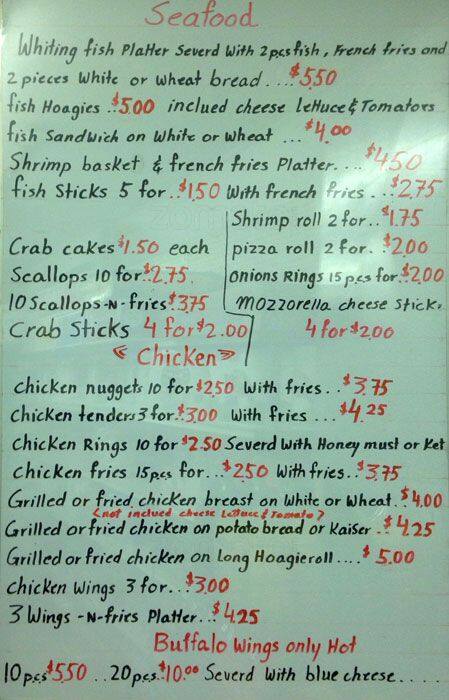 Seafood
Whiting fish Platter Severd With 2 pcs fish, French fries and
2 pieces White or Wheat bread....$5.50
fish Hoagies..$5.00 inclued cheese Lettuce & Tomatoes
fish Sandwich on White or Wheat ...$4.00
Shrimp basket & french fries Platter....$4.50
fish Sticks 5 for..$1.50 With french fries...$2.75
Shrimp roll 2 for..$1.75
Crab cakes $1.50 each
pizza roll 2 for..$2.00
Scallops 10 for $2.75
onions Rings 15 pcs for.$2.00
10 Scallops -N- fries.$3.75
mozzorella cheese Stick
Crab Sticks 4 for $2.00
4 for $2.00
« Chicken »
chicken nuggets 10 for $2.50 With fries..$3.75
chicken tenders 3 for.$3.00 With fries ...$4.25
chicken Rings 10 for $2.50 Severd With Honey must or Ket
chicken fries 15 pcs for...$2.50 With fries..$3.75
Grilled or fried chicken breast on White or Wheat.$4.00
(not inclued cheese Lettuce & Tomato)
Grilled or fried chicken on potato bread or Kaiser..$4.25
Grilled or fried chicken on Long Hoagieroll....$5.00
chicken Wings 3 for...$3.00
3 Wings -N- fries Platter..$4.25
Buffalo Wings only Hot
10 pcs $5.50 ..20 pcs.$10.00 Severd With blue cheese.....